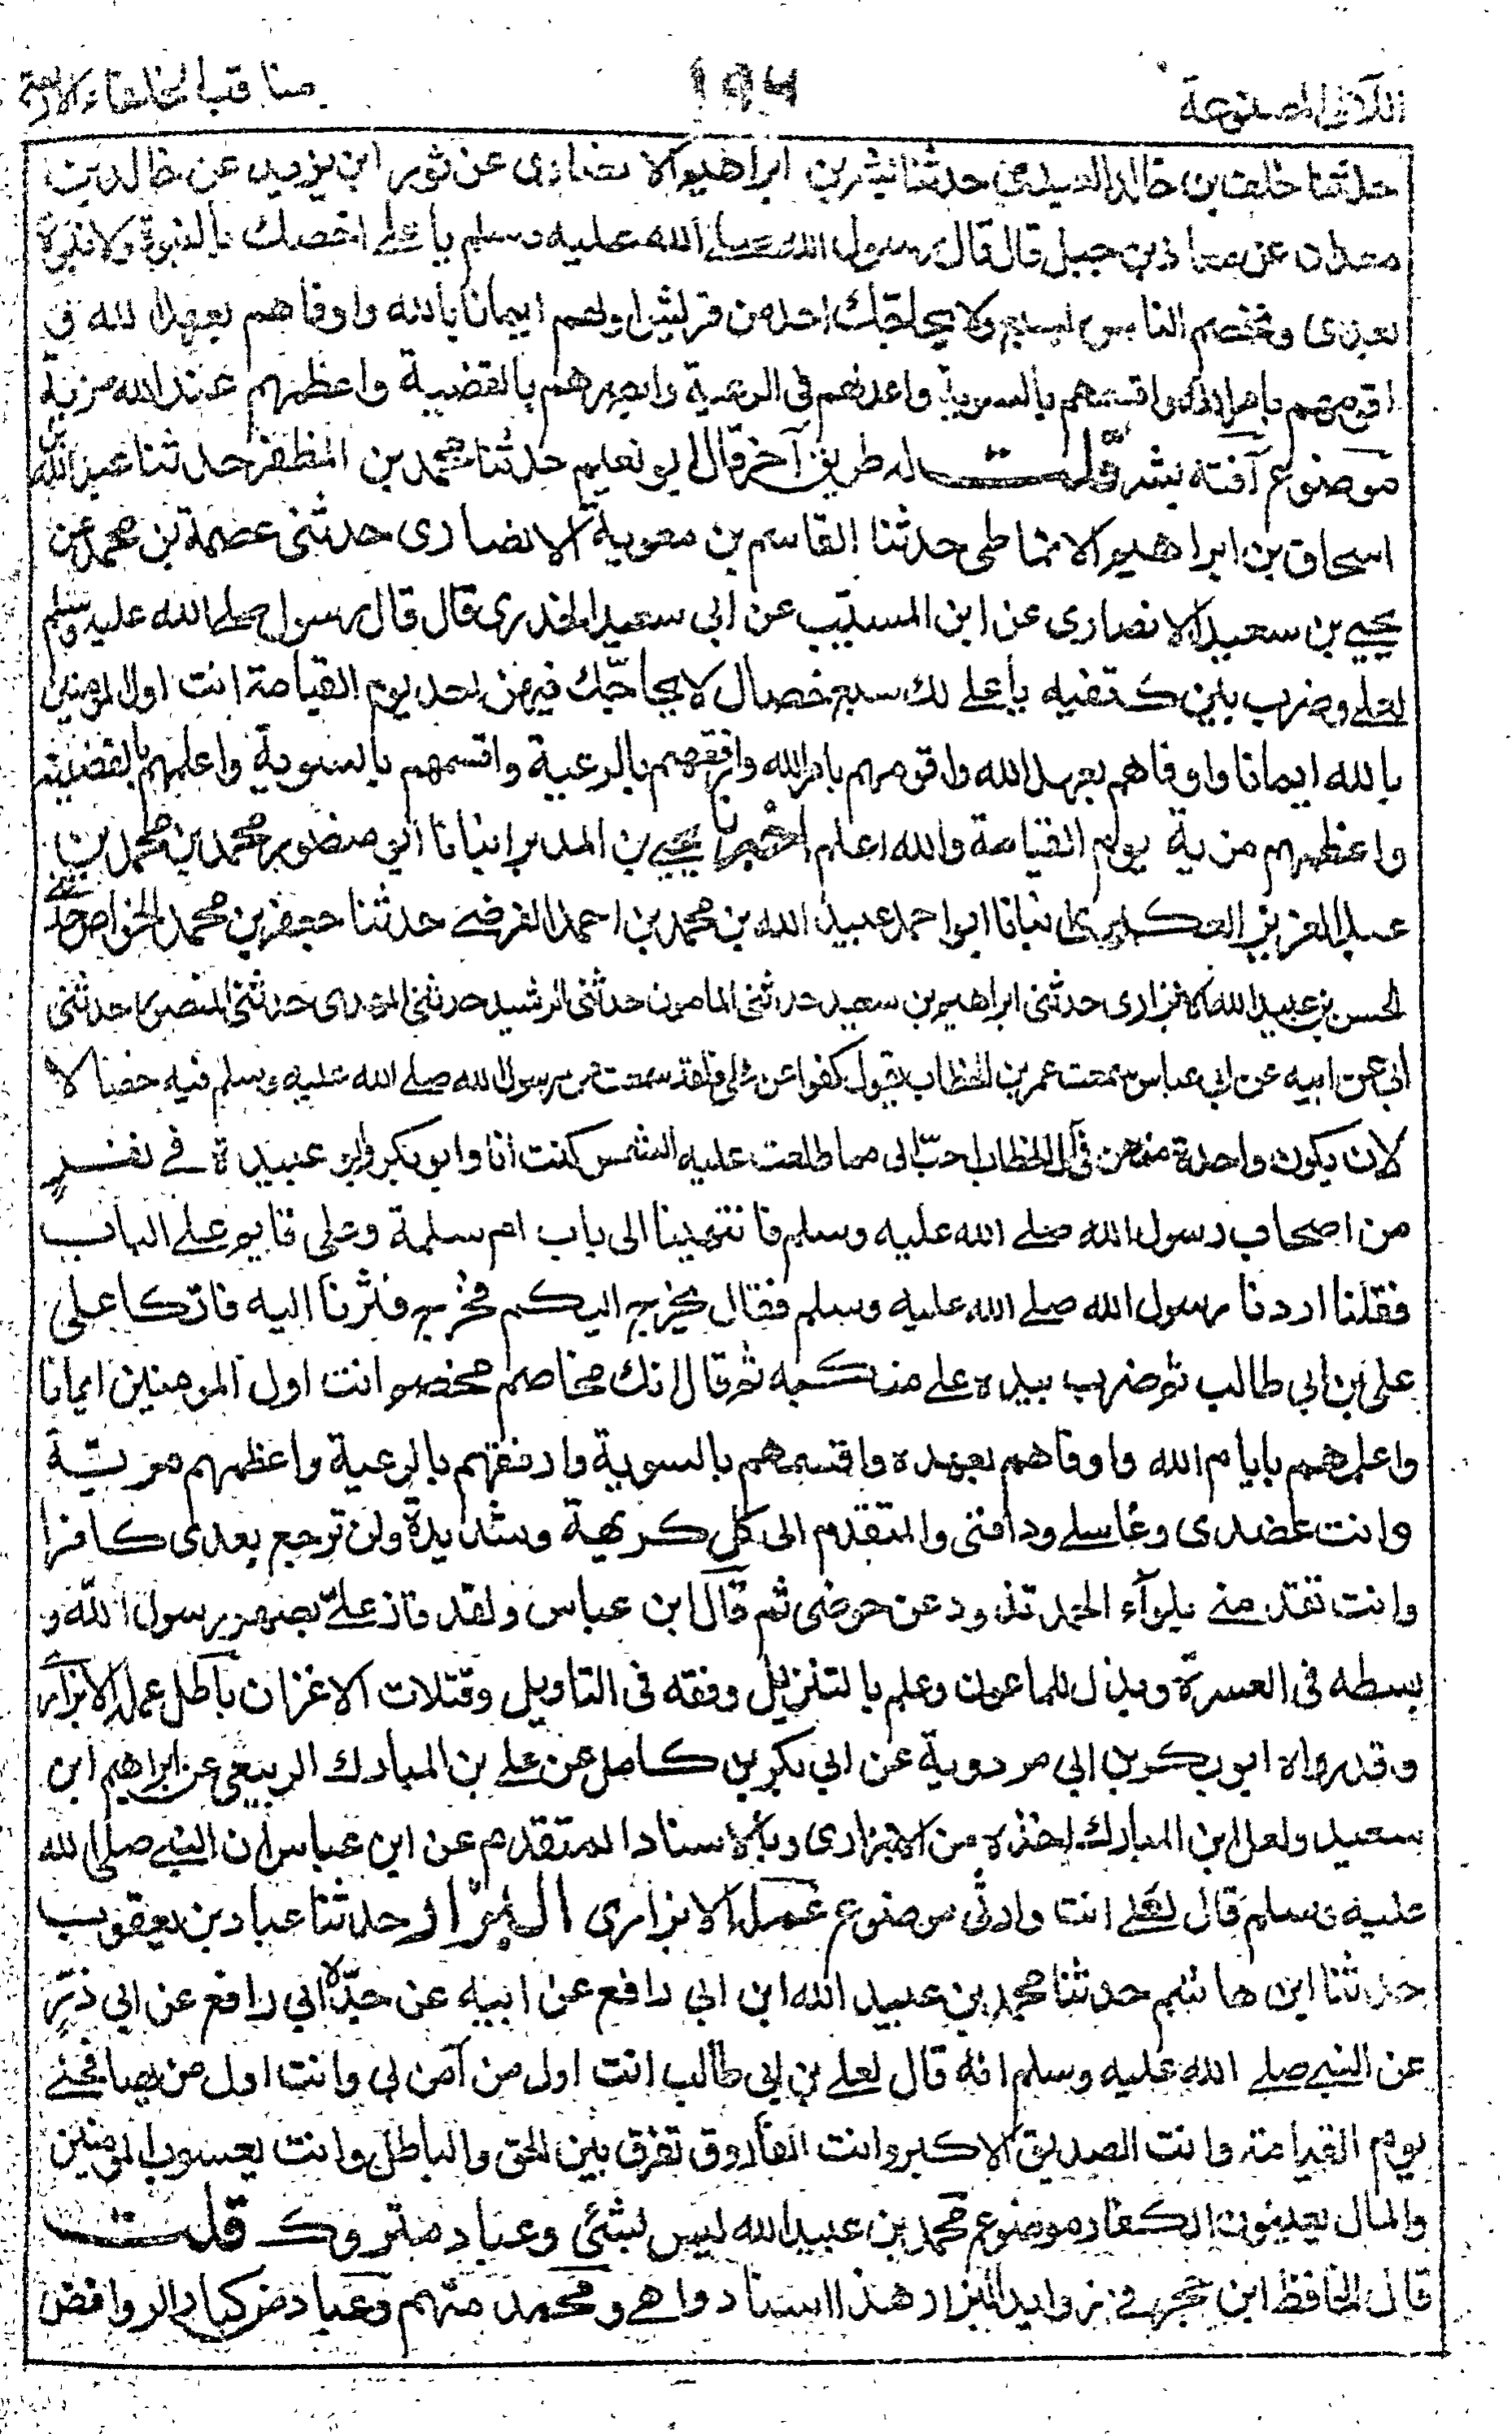 اللآلى المصنوعة
۱۹۴
مناقب الخلفاء الاربعة
حدثنا خلف بن خالد العبدى حدثنا بشر بن ابراهيم الانصارى عن ثور ابن يزيد عن خالد بن
معدان عن معاذ بن جبل قال قال رسول الله صلے الله عليه وسلم يا علے اخصك بالنبوة ولا نبوة
بعدى وتخصم الناس بسبع ولا يحاجك احد من قريش اولهم ايمانا بالله واوفاهم بعهد الله
اقومهم بامر الله واقسمهم بالسوية واعدلهم فى الرعية وابصرهم بالقضية واعظمهم عند الله مزية
موضوع آفته بشر قلت له طريق آخر قال ابو نعيم حدثنا محمد بن المظفر حدثنا عبد الله بن
اسحاق بن ابراهيم الانماطى حدثنا القاسم بن معوية الانصارى حدثنى عصمة بن محمد عن
يحيے بن سعيد الانصارى عن ابن المسيّب عن ابى سعيد الخدرى قال قال رسول صلے الله عليه وسلم
لعلے وضرب بين كتفيه يا علے لك سبع خصال لا يحاجّك فيهن احد يوم القيامة انت اول المومنين
بالله ايمانا واوفاهم بعهد الله واقومهم بامر الله وارفقهم بالرعية واقسمهم بالسوية واعلمهم بالقضية
واعظمهم مزية يوم القيامة والله اعلم اخبرنا يحيے بن المدبر انبانا ابو منصور محمد بن محمد بن
عبد العزيز العكبرى انبانا ابو احمد عبيد الله بن محمد بن احمد الفرضے حدثنا جعفر بن محمد الخواص حدثنے
الحسن بن عبيد الله الابزارى حدثنى ابراهيم بن سعيد حدثنى المامون حدثنى الرشيد حدثنى المهدى حدثنى المنصور حدثنى
ابى عن ابيه عن ابى عباس سمعت عمر بن الخطاب يقول كفوا عن علي فلقد سمعت من رسول الله صلے الله عليه وسلم فيه خصالا
لان يكون واحدة منهن فى آل الخطاب احبّ الى مما طلعت عليه الشمس كنت انا وابو بكر وابو عبيدة فے نفر
من اصحاب رسول الله صلے الله عليه وسلم فانتهينا الى باب ام سلمة وعلى قايم علے الباب
فقلنا اردنا رسول الله صلے الله عليه وسلم فقال يخرج اليكم فخرج فثرنا اليه فاتكا على
على بن ابى طالب ثم ضرب بيده علے منكبه ثم قال انك مخاصم مخصم انت اول المومنين ايمانا
واعلمهم بايام الله واوفاهم بعهده واقسمهم بالسوية وارفقهم بالرعية واعظمهم مزيّة
وانت عضدى وغاسلے ودافنى والمتقدم الى كل كريهة وشديدة ولن ترجع بعدى كافرا
وانت تقدمنے بلوآء الحمد تذود عن حوضى ثم قال ابن عباس ولقد فاز علىّ بصهر رسول الله و
بسطه فى العسرة وبذل للماعون وعلم بالتنزيل وفقه فى التاويل وقتلات الاغران باطل عمله الابزارى
وقد رواه ابو بكر بن ابى مردوية عن ابى بكر بن كامل عن علے بن المبارك الربيعى عن ابراهيم ابن
سعيد ولعل ابن المبارك اخذه من الابزارى وبالاسناد المتقدم عن ابن عباس ان النبے صلى الله
عليه وسلم قال لعلے انت وارثى موضوع عمله الابزارى البزار حدثنا عباد بن يعقوب
حدثنا ابن هاشم حدثنا محمد بن عبيد الله ابن ابى رافع عن ابيه عن جدّه ابى رافع عن ابى ذرّ
عن النبے صلے الله عليه وسلم انه قال لعلے بن ابى طالب انت اول من آمن بى وانت اول من يصافحنے
يوم القيامة وانت الصديق الاكبر وانت الفاروق تفرق بين الحق والباطل وانت يعسوب المومنين
والمال يعسوب الكفار موضوع محمد بن عبيد الله ليس بشئى وعباد متروك قلت
قال الحافظ ابن حجر فے زوايد البزار هذا اسناد واهے ومحمد متهم وعباد من كبار الروافض